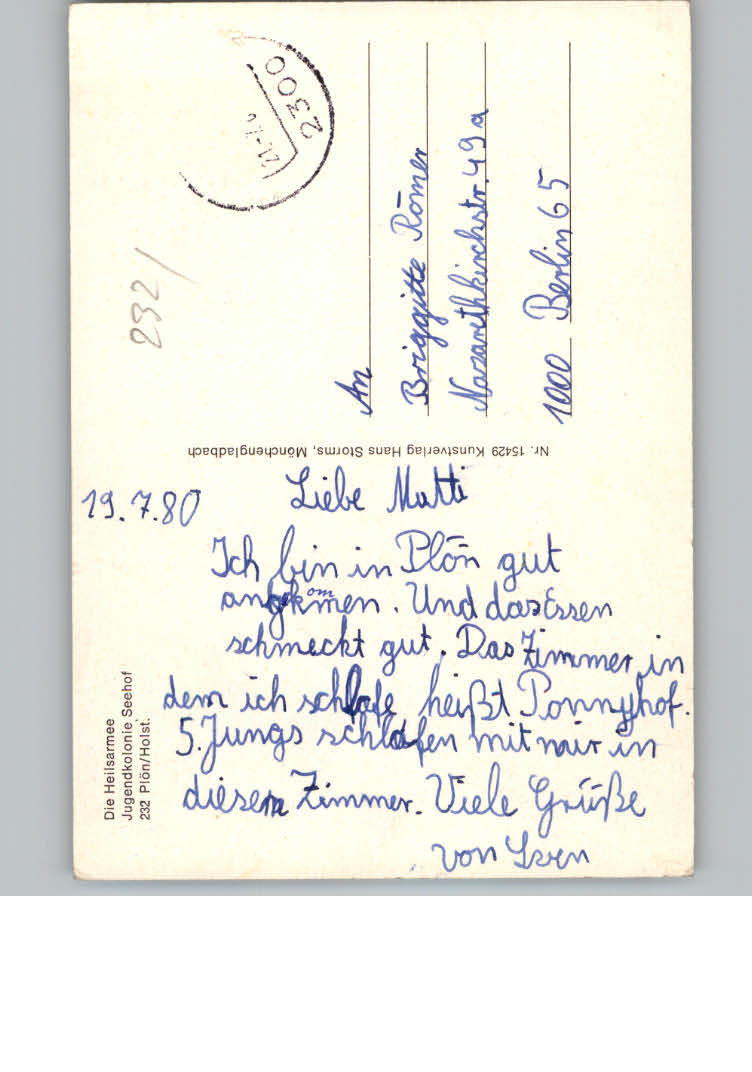 Die Heilsarmee
Jugendkolonie Seehof
232 Plön/Holst.
19.7.80
Liebe Mutti
Ich bin in Plön gut
angekommen. Und das Essen
schmeckt gut. Das Zimmer in
dem ich schlafe heißt Ponnyhof.
5. Jungs schlafen mit mir in
diesem Zimmer. Viele Grüße
von Sven
Nr. 15429 Kunstverlag Hans Storms, Mönchengladbach
An
Briggitte Römer
Nazarethkirchstr. 49a
1000 Berlin 65
2300
232/